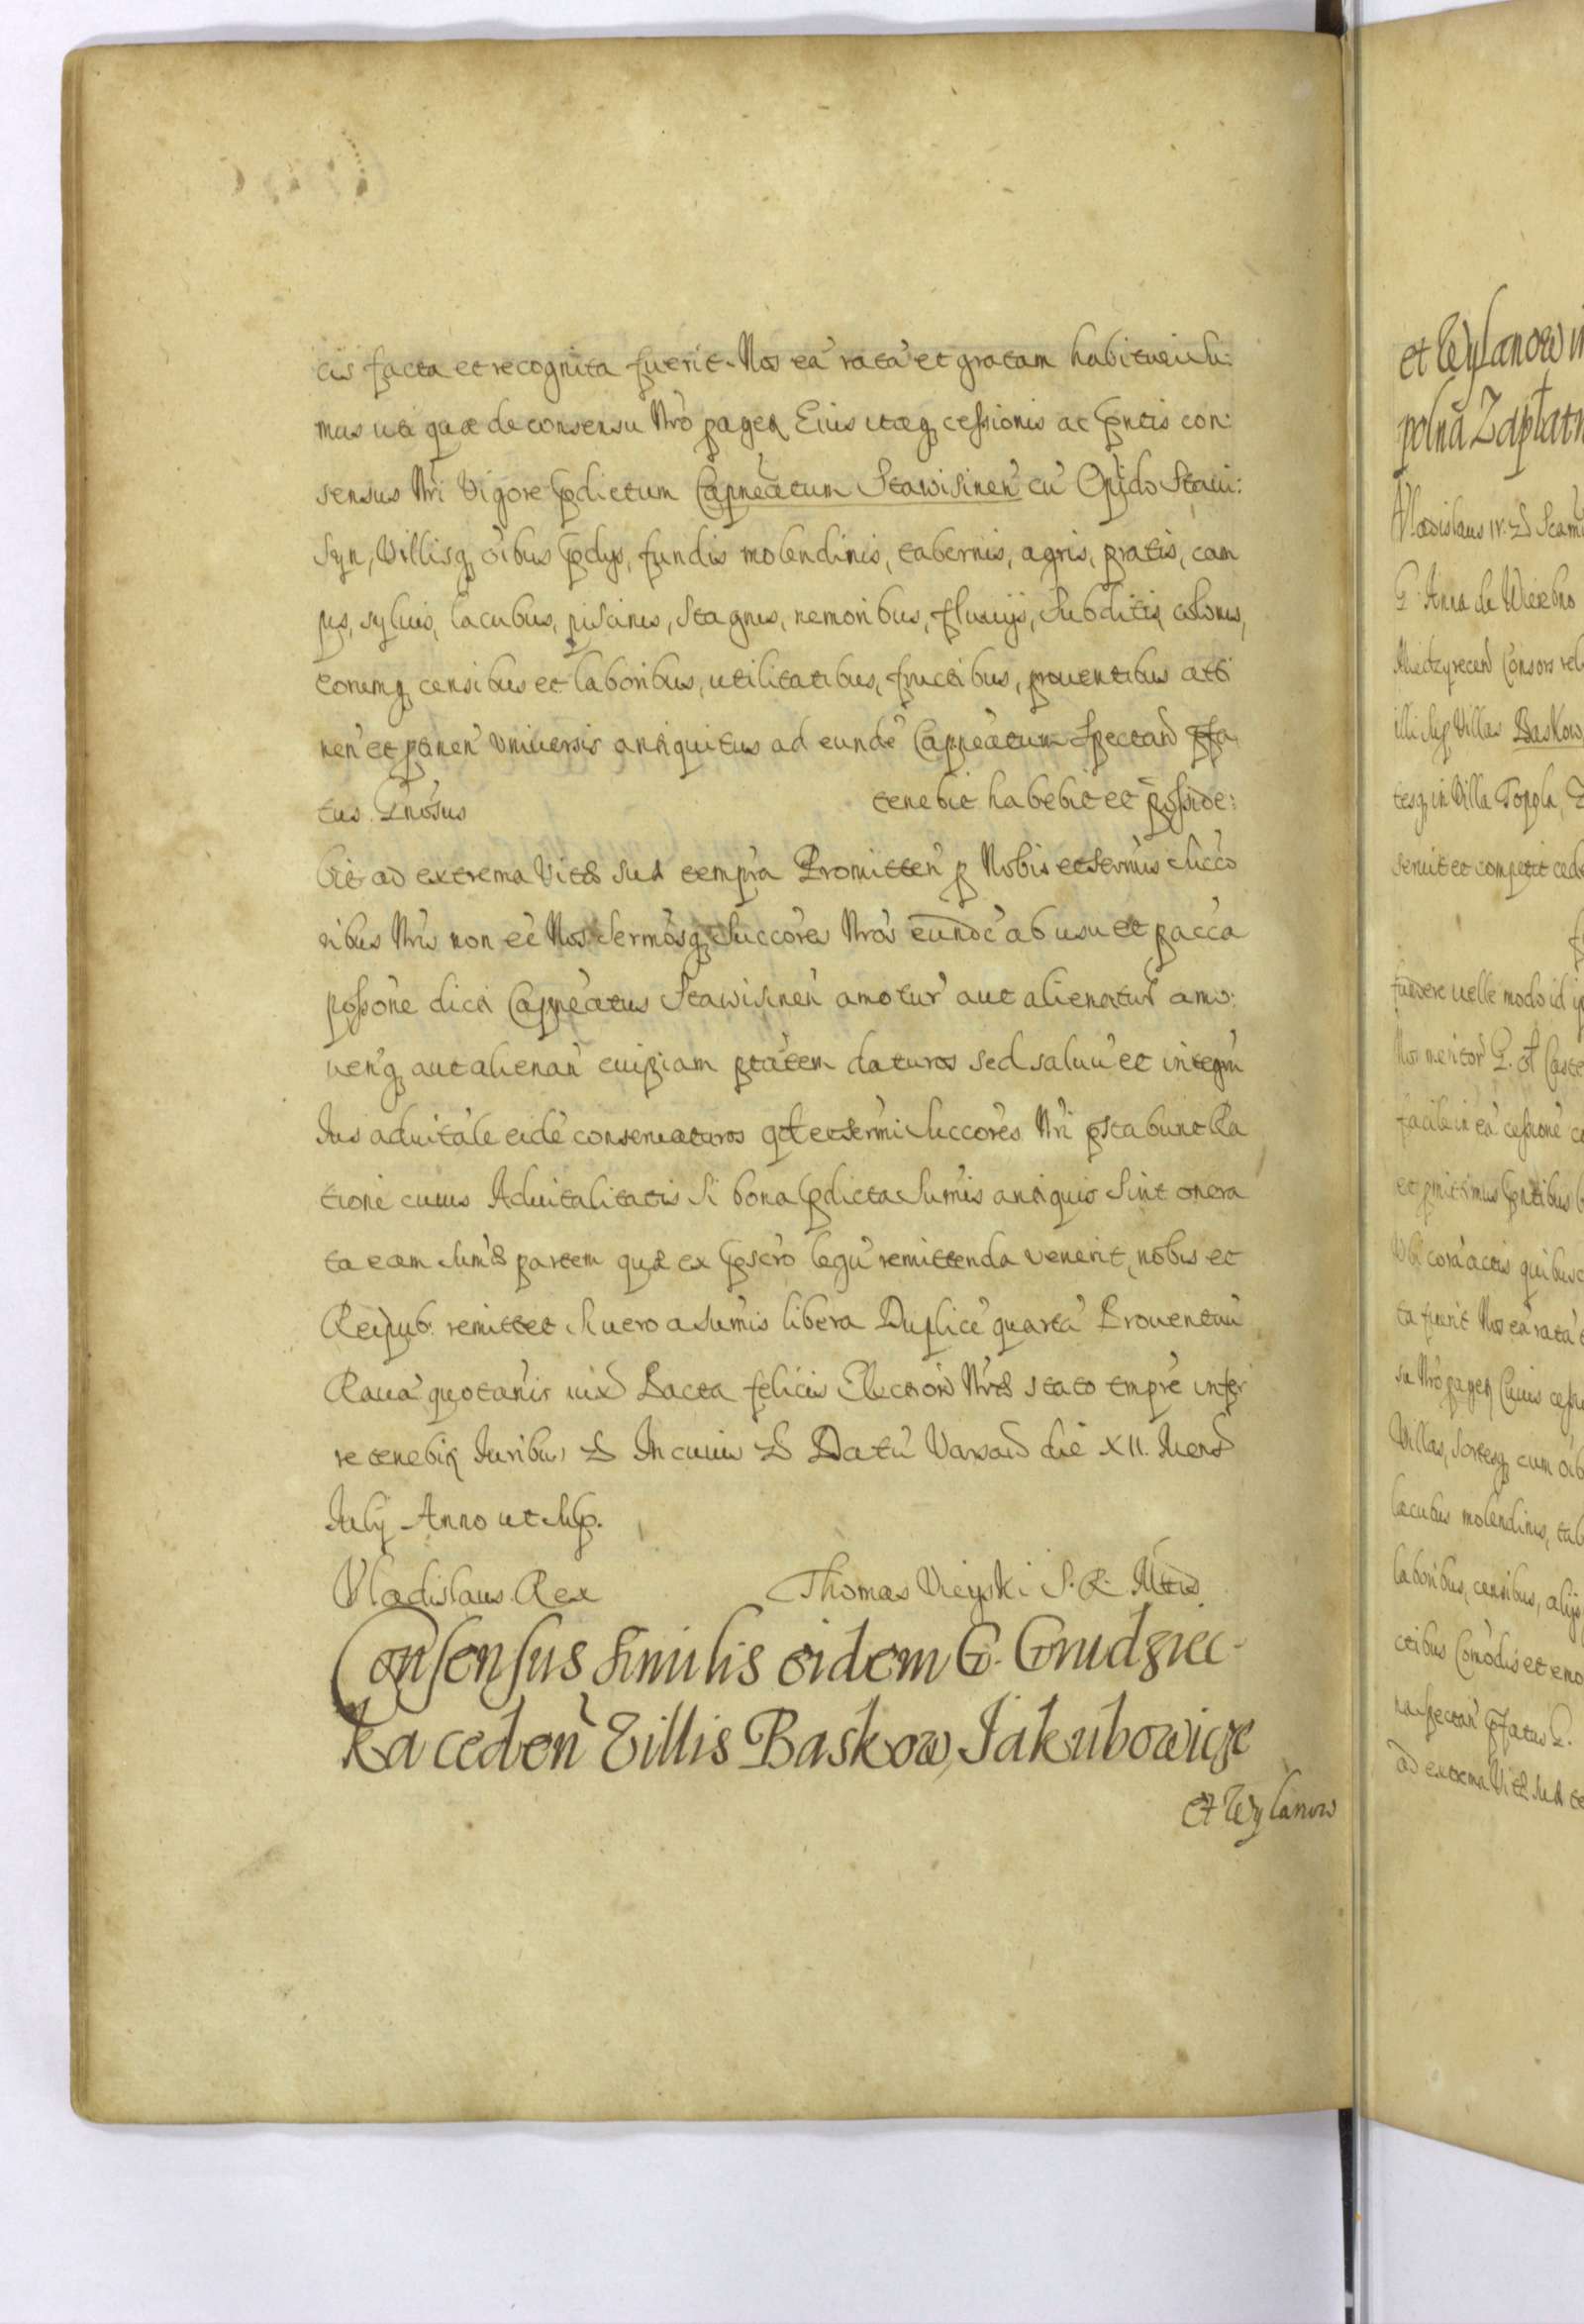 cis facta et recognita fuerit. Nos eã ratã et gratam habituri su:
mus uti quæ de consensu Nrõ pager Eius itaq cessionis ac pntis con:
sensus Nri Vigore pdictum Capneatum Stawisinen cũ Opido Staui:
syn, Villisq oibus pdys, fundis molendinis, tabernis, agris, pratis, cam
pis, syluis, lacubus, piscinis, stagnis, nemoribus, fluuijs, subditis colonis,
eorumq censibus et laboribus, utilitatibus, fructibus, prouentibus atti
nen et ptinen vniuersis antiquitus ad eundẽ Capneatum spectan pfa
tus Gnosus tenebit habebit et posside:
bit ad extrema Vitæ suæ tempra Promitten p Nobis et Sermis Succo
ribus Nris non eẽ Nos Sermosq Succores Nros eundẽ ab usu et pacca
possone dicti Capneatus Stawisinen amotur aut alienatur amo:
uenq aut alienan cuipiam ptatem daturos sed saluũ et integrũ
Jus aduitale eidẽ conseruaturos qd et Sermi Succores Nri pstabunt Ra
tione cuius Aduitalitatis si bona pdicta sumis antiquis sint onera
ta eam sumæ partem quæ ex pscro legũ remittenda venerit, nobis et
Reipub: remittet si uero a sumis libera Duplicẽ quartã Prouentuũ
Rauã quotanis iux Pacta felicis Election Nræ stato tmpre infer
re tenebir Juribus & In cuius & Datũ Varsaũ die XII. Mens
July Anno ut sup.
Vladislaus Rex Thomas Vieyski S. R. Mtis
Consensus similis eidem G. Grudziec-
ka ceden Villis Baskow, Jakubowicze
et Wylanow
et Wylanow in
polnã Zapłatn
Vladislaus IV. &
G. Anna de Wierzbno
Miedzyrecen Consors rel
illi sup Villas Baskow
tesq in Villa Topola, &
seruit et competit cede
uelle modo id ip
facile in eã cessionẽ co
et pmittimus pntibus
Vbi corã actis quibusc
ta fuerit Nos eã ratã e
su Nrõ pager Cuius cessi
Villas, Sortesq cum oib
lacubus molendinis, tab
laboribus, censibus, alijs
ctibus Comodis et emo
spectan pfatus G.
ad extrema Vitæ suæ te